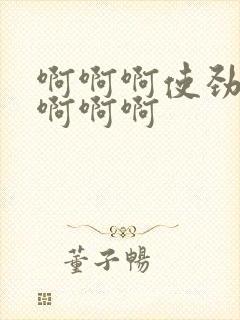 啊啊啊使劲
啊啊啊
董子畅